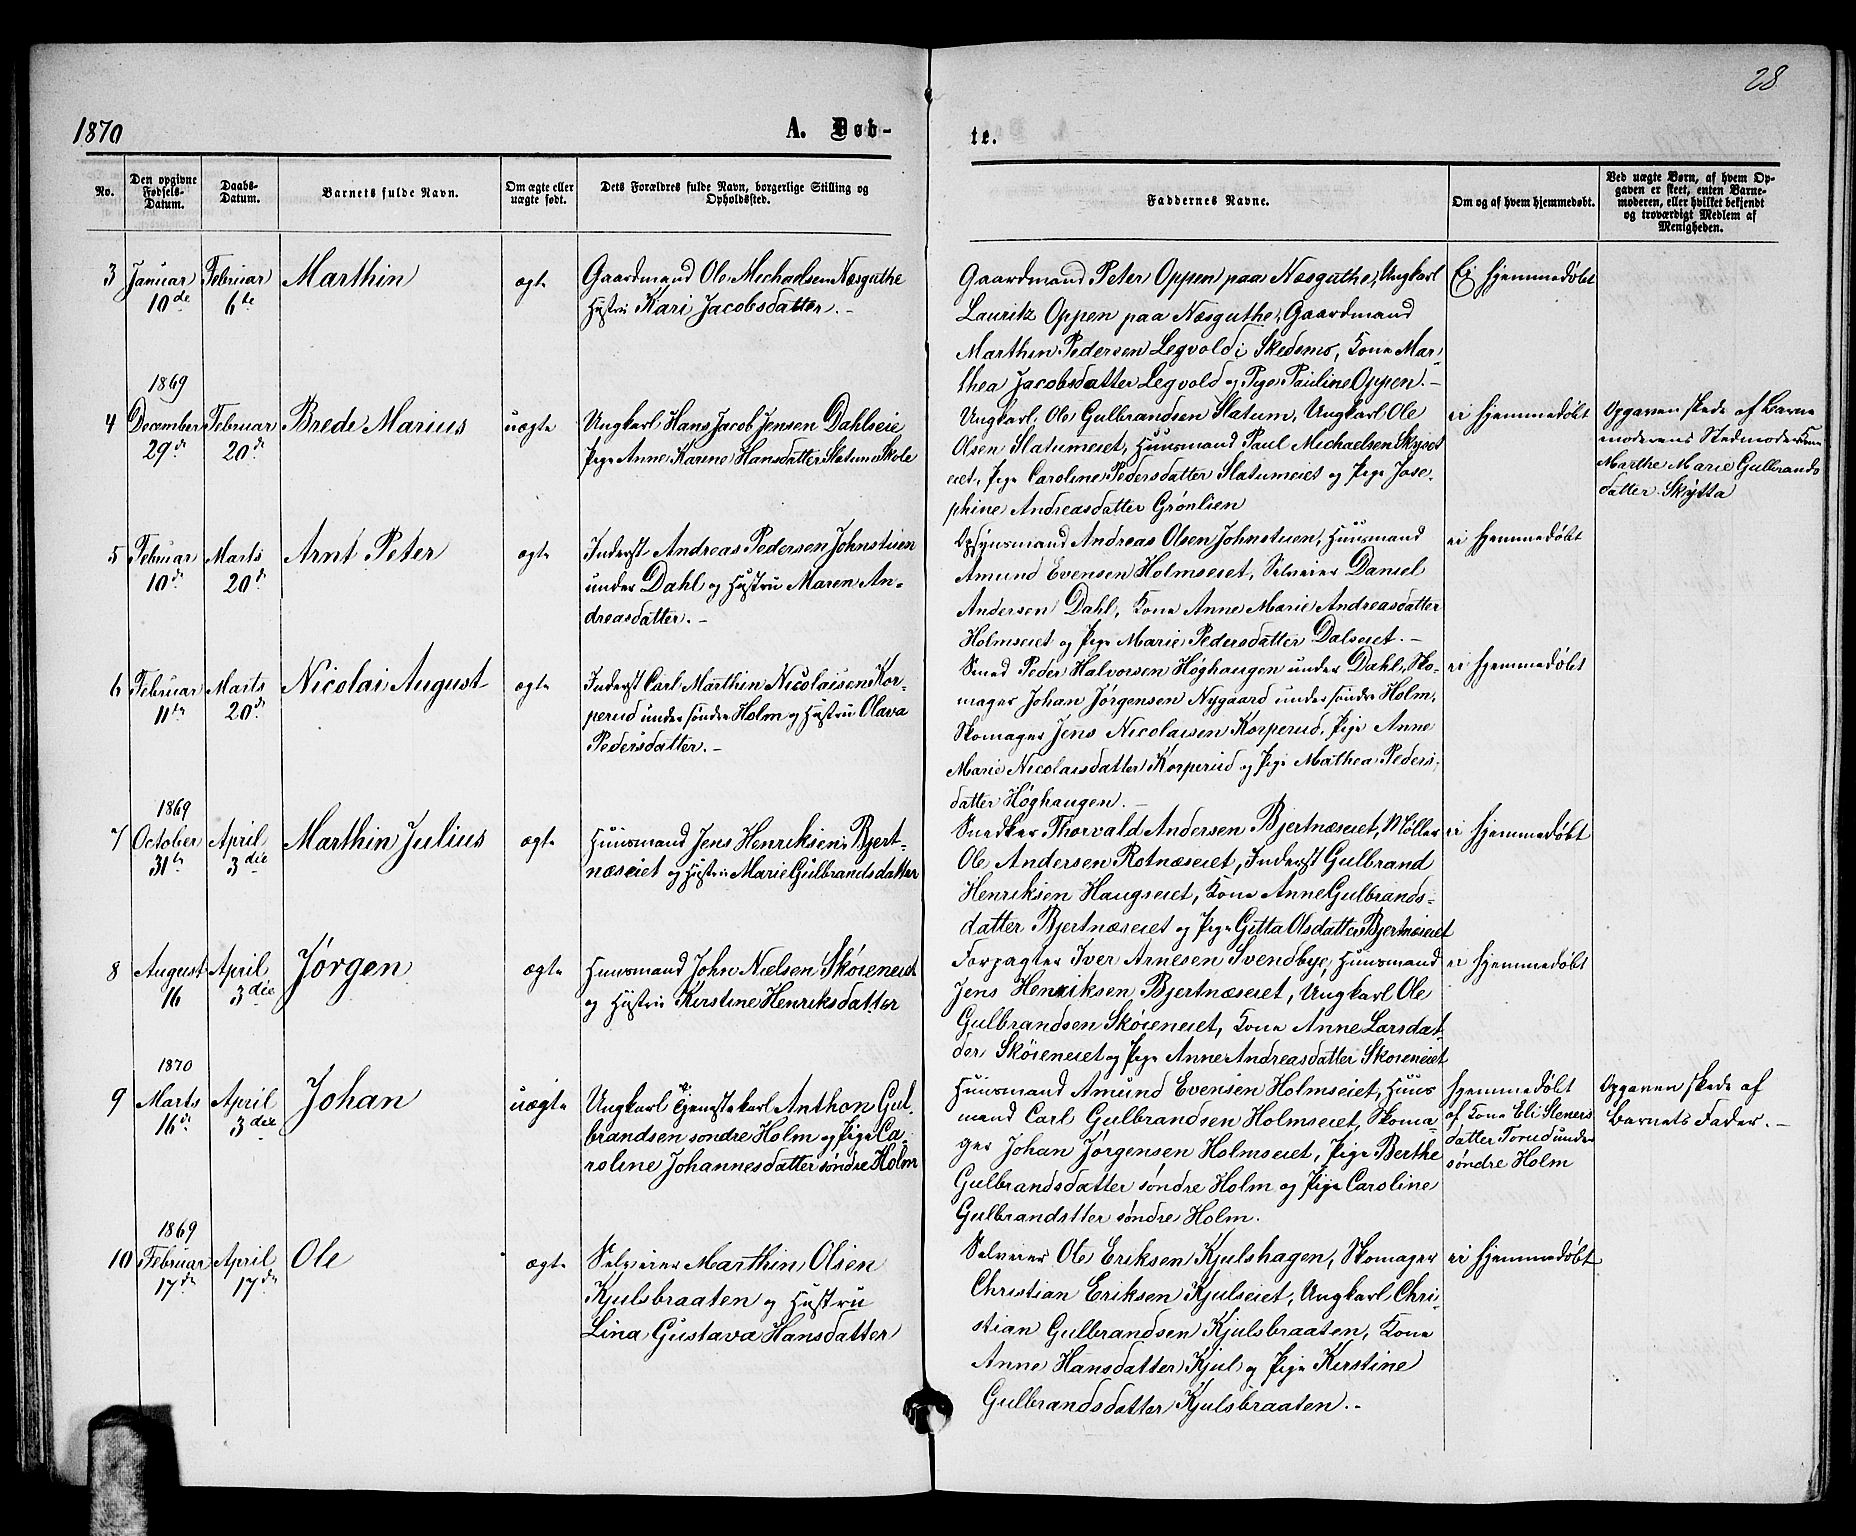 28
1870
A. Døb-
te.
No.
Den opgivne
Fødsels-
Datum.
Daabs-
Datum.
Barnets fulde Navn.
Om ægte eller
uægte født.
Dets Forældres fulde Navn, borgerlige Stilling og
Opholdssted.
Faddernes Navne.
Om og af hvem hjemmedøbt.
Ved uægte Børn, af hvem Op-
gaven er skeet, enten Barne-
moderen, eller hvilket bekjendt
og troværdigt Medlem af
Menigheden.
3
Januar
10de
Februar
6te
Marthin
ægte
Gaardmand Ole Michaelsen Næsguthe
Hustru Kari Jacobsdatter.-
Gaardmand Peter Oppen paa Næsguthe, Ungkarl
Lauritz Oppen paa Næsguthe, Gaardmand
Marthin Pedersen Legvold i Skedsmo, Kone Mar-
thea Jacobsdatter Legvold og Pige Pauline Oppen.-
Ei hjemmedøbt
4
1869
December
29de
Februar
20de
Brede Marius
uægte
Ungkarl Hans Jacob Jensen Dahlseie
Pige Anne Karine Hansdatter Slatum Skole
Ungkarl Ole Gulbrandsen Slatum, Ungkarl Ole
Olsen Slatumeiet, Huusmand Paul Michaelsen Skyset
eiet, Pige Caroline Pedersdatter Slatumeiet og Pige Jose-
phine Andreasdatter Grønlien
ei hjemmedøbt
Opgaven skede af Barne
moderens Stedmoder Kone
Marthe Marie Gulbrands
datter Skytta
5
Februar
10de
Marts
20de
Arnt Peter
ægte
Inderst Andreas Pedersen Johnstuen
under Dahl og Hustru Maren An-
dreasdatter.-
Opsynsmand Andreas Olsen Johnstuen, Huusmand
Amund Evensen Holmseiet, Selveier Daniel
Andersen Dahl, Kone Anne Marie Andreasdatter
Holmseiet og Pige Marie Pedersdatter Dalseiet.-
ei hjemmedøbt
6
Februar
11te
Marts
20de
Nicolai August
ægte
Inderst Carl Marthin Nicolaisen Kor-
perud under søndre Holm og Hustru Olava
Pedersdatter.-
Smed Peder Halvorsen Høghaugen under Dahl, Sko-
mager Johan Jørgensen Nygaard under søndre Holm,
Skomager Jens Nicolaisen Korperud, Pige Anne
Marie Nicolaisdatter Korperud og Pige Mathea Peders-
datter Høghaugen.-
ei hjemmedøbt
7
1869
October
31te
April
3die
Marthin Julius
ægte
Huusmand Jens Henriksen Bjert-
næseiet og Hustru Marie Gulbrandsdatter
Snedker Thorvald Andersen Bjertnæseiet, Møller
Ole Andersen Rotnæseiet, Inderst Gulbrand
Henriksen Haugseiet, Kone Anne Gulbrands-
datter Bjertnæseiet og Pige Gitta Olsdatter Bjertnæseiet
ei hjemmedøbt
8
August
16
April
3die
Jørgen
ægte
Huusmand John Nielsen Skøieneiet
og Hustru Kirstine Henriksdatter
Forpagter Iver Arnesen Svendby, Huusmand
Jens Henriksen Bjertnæseiet, Ungkarl Ole
Gulbrandsen Skøieneiet, Kone Anne Larsdat-
der Skøieneiet og Pige Anne Andreasdatter Skøieneiet
ei hjemmedøbt
9
1870
Marts
16de
April
3die
Johan
uægte
Ungkarl Tjenestekarl Anthon Gul-
brandsen søndre Holm og Pige Ca-
roline Johannesdatter søndre Holm
Huusmand Amund Evensen Holmseiet, Huus
mand Carl Gulbrandsen Holmseiet, Skoma-
ger Johan Jørgensen Holmseiet, Pige Berthe
Gulbrandsdatter søndre Holm og Pige Caroline
Gulbrandstter søndre Holm.
hjemmedøbt
af Kone Eli Steners
datter Torud under
søndre Holm
Opgaven skede af
Barnets Fader.-
10
1869
Februar
17de
April
17de
Ole
ægte
Selveier Marthin Olsen
Kjulsbraaten og Hustru
Lina Gustava Hansdatter
Selveier Ole Eriksen Kjulshagen, Skomager
Christian Eriksen Kjulseiet, Ungkarl Chri-
stian Gulbrandsen Kjulsbraaten, Kone
Anne Hansdatter Kjul og Pige Kirstine
Gulbrandsdatter Kjulsbraaten.-
ei hjemmedøbt